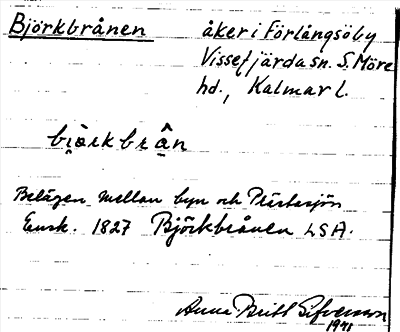 Björkbrånen åker i Förlångsöby
Vissefjärda sn. S. Möre
hd., Kalmar l.
bjàrkbrân
Belägen mellan byn och
Ensk. 1827 Björkbrånen LSA.
Anna-Britt
1971